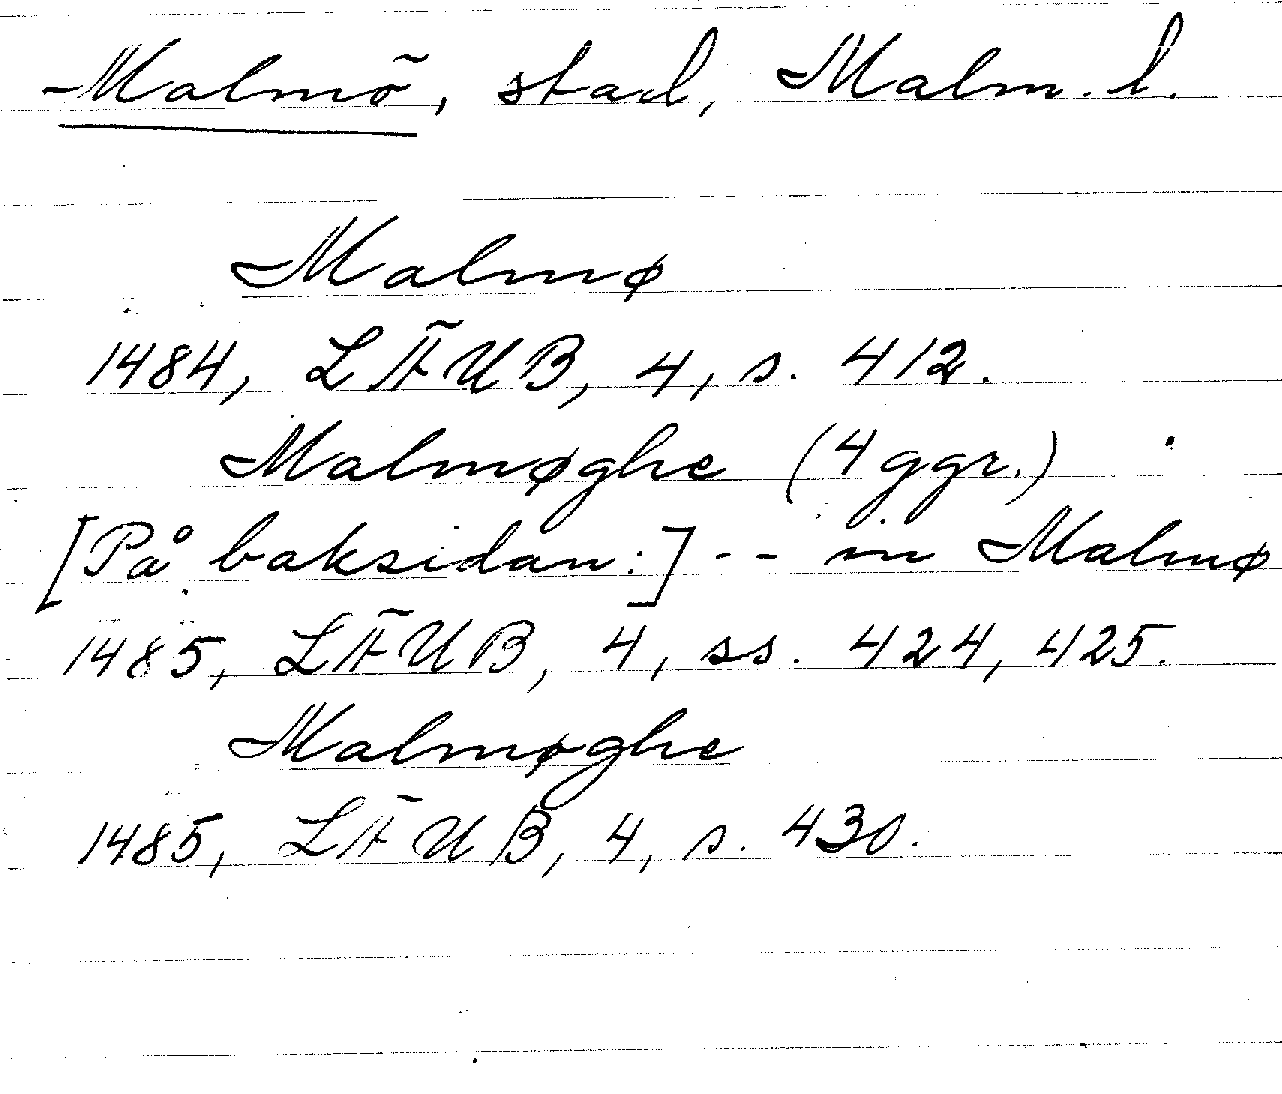 Malmö, stad, Malm. l.
Malmø
1484, LÄUB, 4, s. 412.
Malmøghe (4 ggr.)
[På baksidan:] -- in Malmø
1485, LÄUB, 4, ss. 424, 425.
Malmøghe
1485, LÄUB, 4, s. 430.